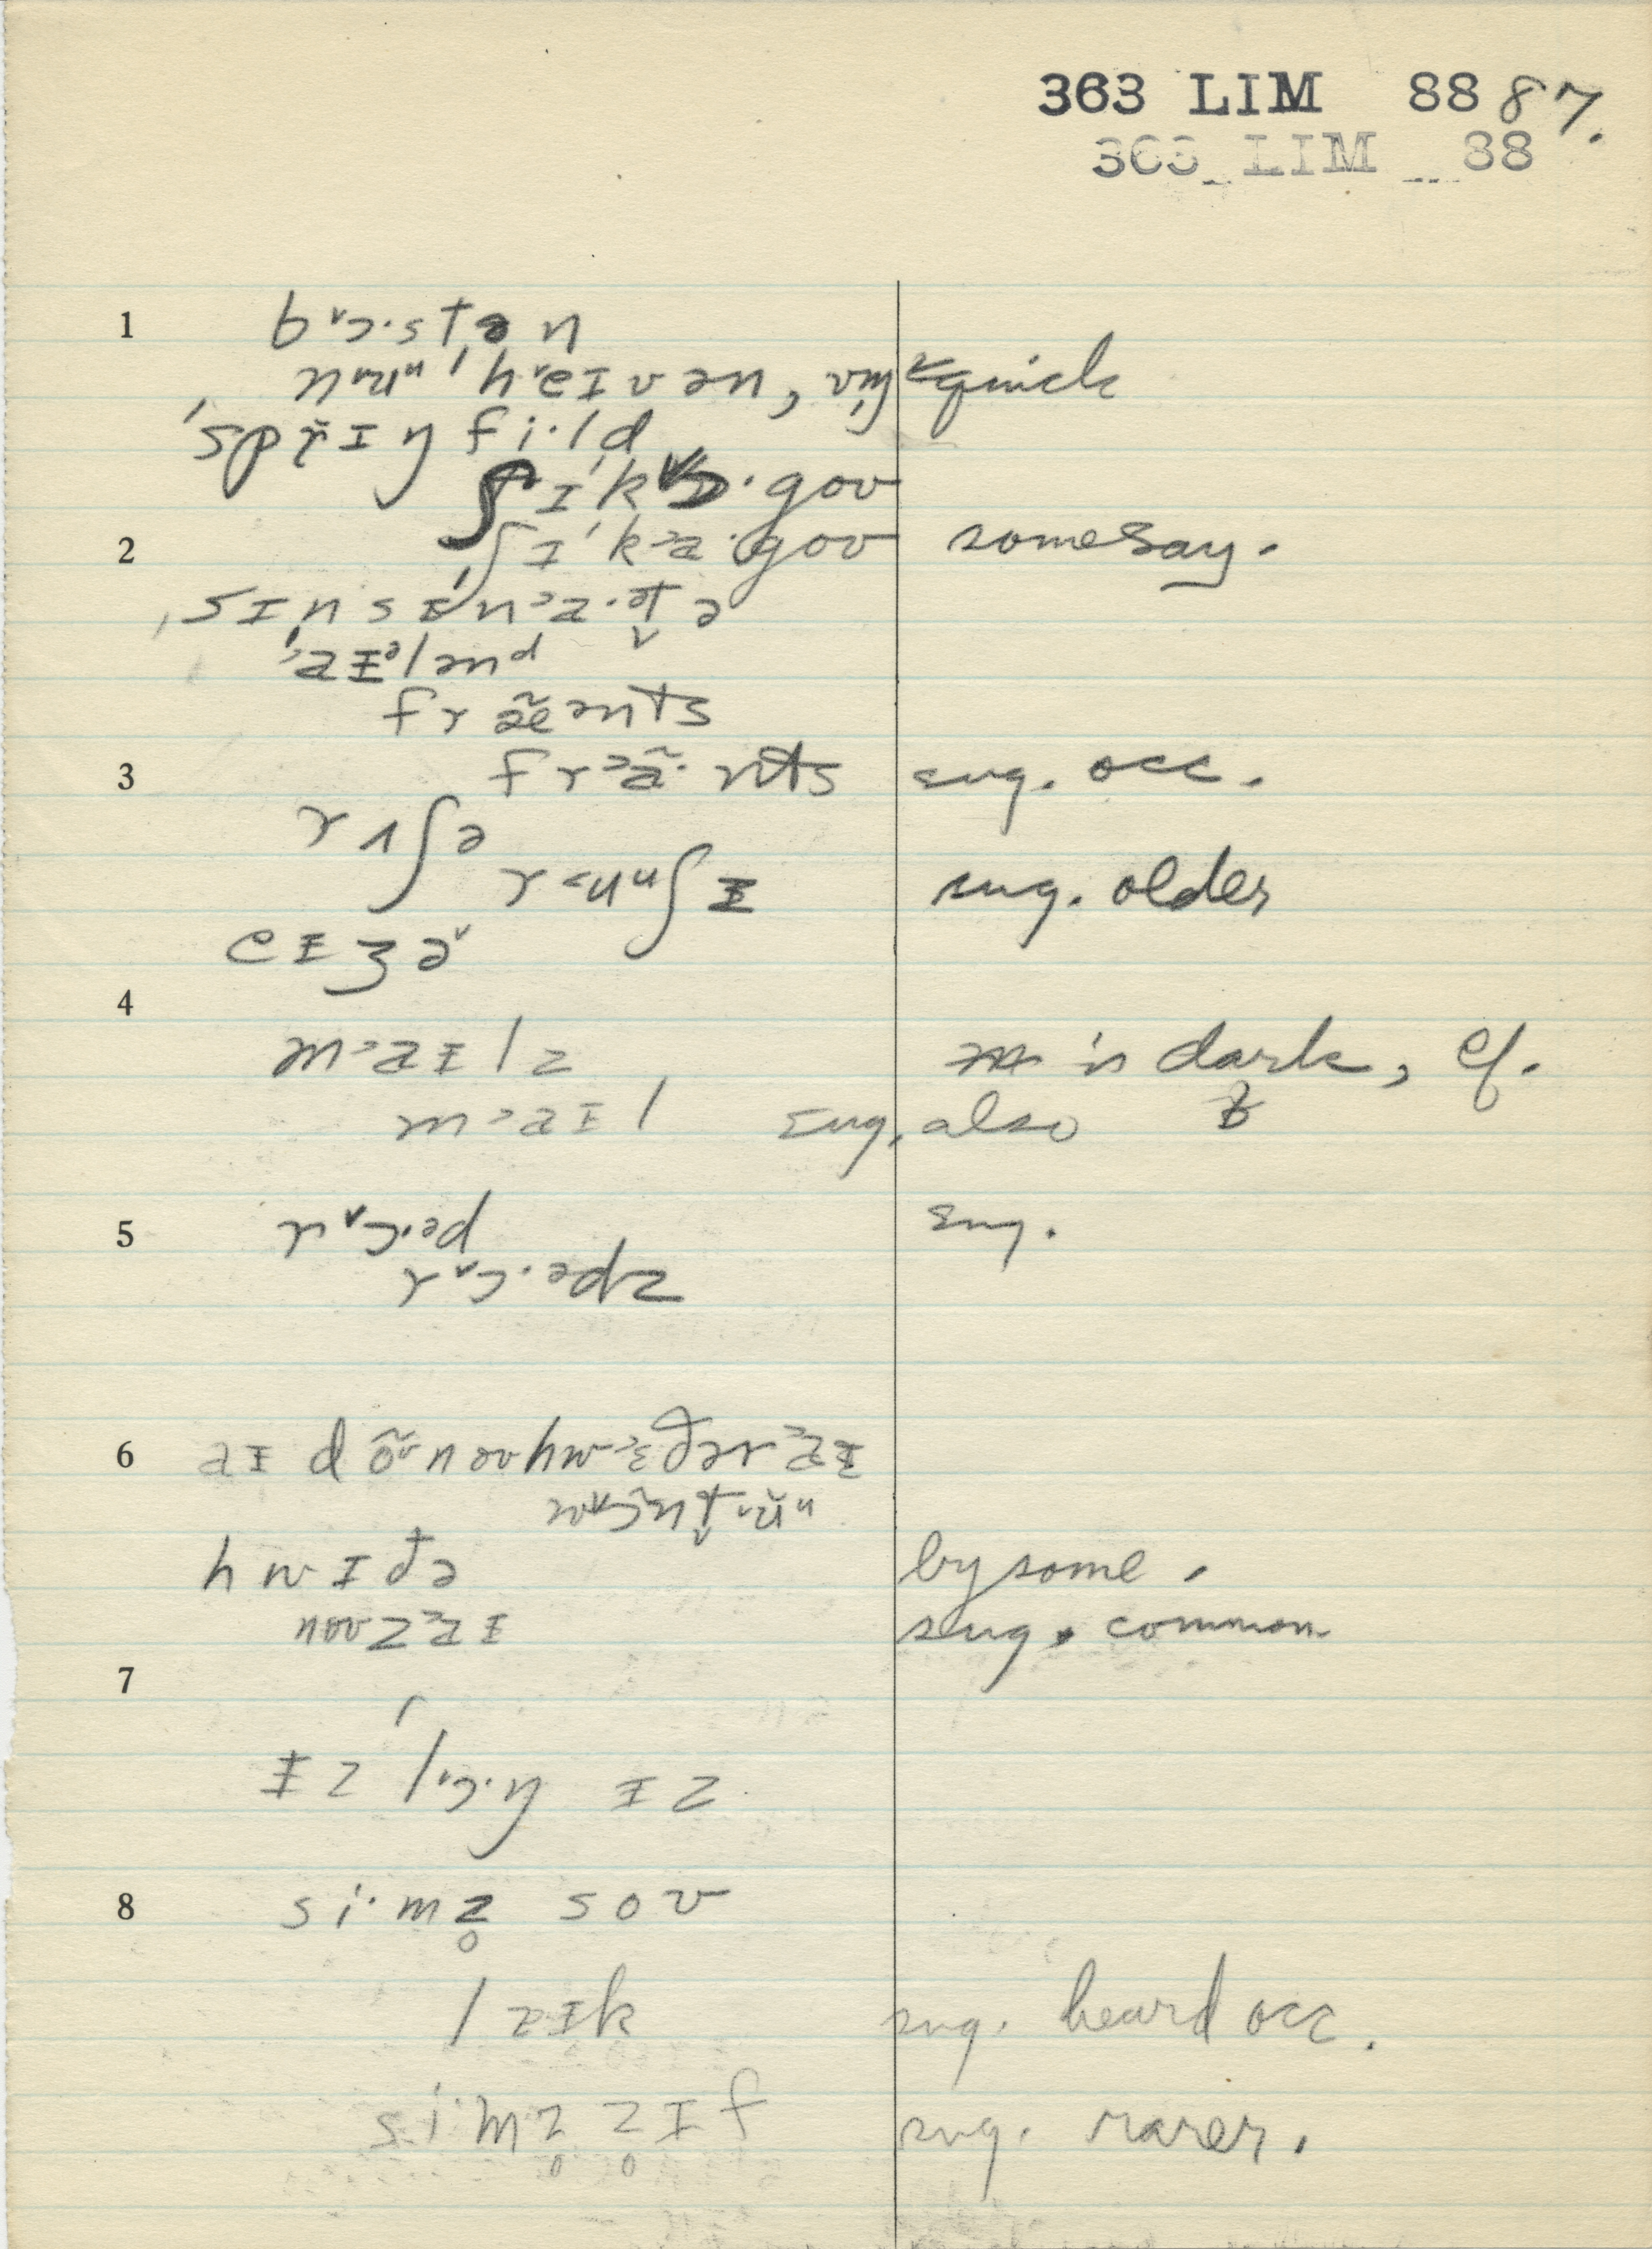 363 LIM 88 87.
363 LIM 88
1 b˅ɔ·stən
ˈh˂eɪvən, quick
ˈsprɪŋfi·ld
ʃɪˈk˅ɒ·goʊ
2 ʃɪˈk˃a·goʊ some say.
ˌsɪnsɪˈn˃a·t̬ə
ˈ˃aɪᵊlənᵈ
fræ̃ənts
3 fr˃ã·nts sug. occ.
rʌʃə
r˂uᵘʃɪ sug. older
eɪʒə˅
4
m˃aɪlz is dark, cf.
m˃aɪl sug. also ɫ
5 r˅ɔ·əd sug.
r˅ɔ·ədz
6 aɪ dõʊnoʊhw˃ɛðər˃aɪ
w˅ɔ̃nt̬˂uᵘ
hwɪðə by some.
noʊz˃aɪ sug. common
7
ɪz l˅ɔ·ŋ ɪz
8 si·mz̥ soʊ
lɪk sug. heard occ.
si·mz̥ z̥ɪf sug. rarer.